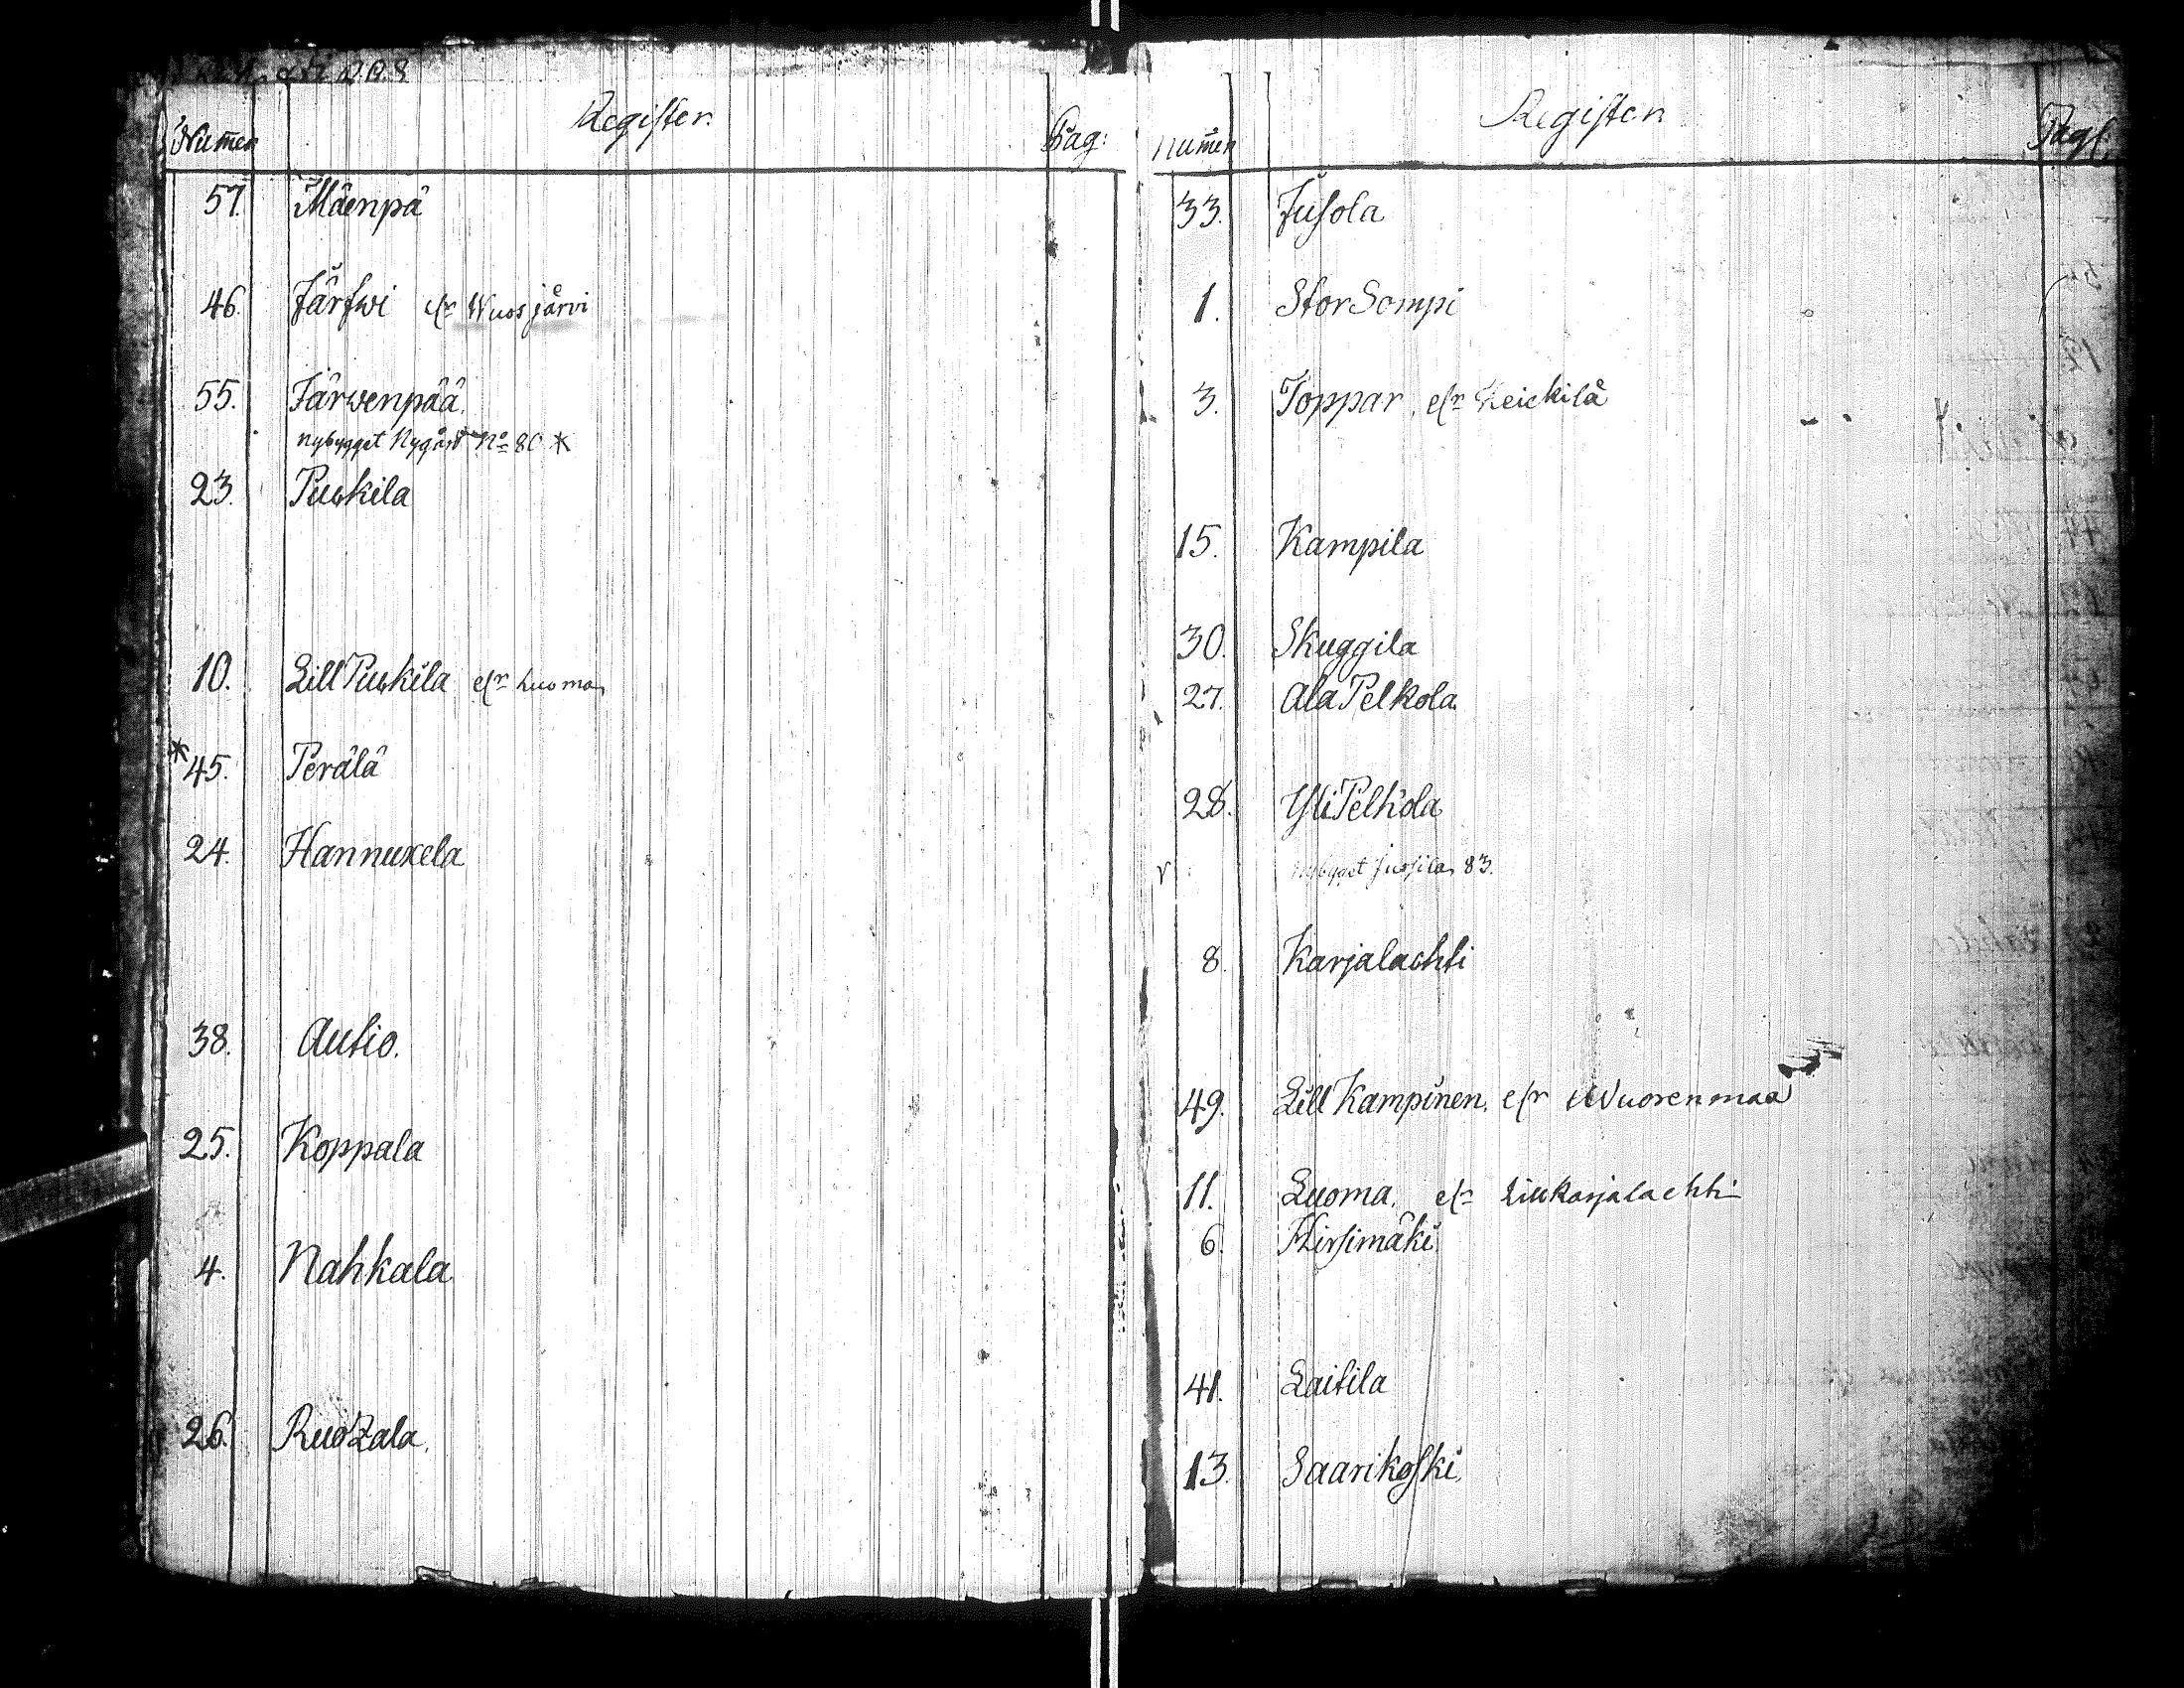 Numer Register. Pag:
57. Mäenpä
46. Järfwi el:r Wuosjärvi
55. Järwenpää.
nybygget Nygård No 80 *
23. Puskila
10. Lill Puskila el:r Luoma
* 45. Perälä
24. Hannuxela
38. Autio.
25. Koppala
4. Nahkala
26. Ruotzala.
Numer Register Pag:
33. Jusola
1. StorSompi
3. Toppar, el:r Heickilä
15. Kampila
30. Skuggila
27. Ala Pelkola
28. Yli Pelkola
nybygget Jussila 83.
8. Karjalachti
49. Lill Kampinen. el:r Wuorenmaa
11. Luoma. el:r Lill Karjalachti
6. Hirsimäki
41. Laitila
13. Saarikoski